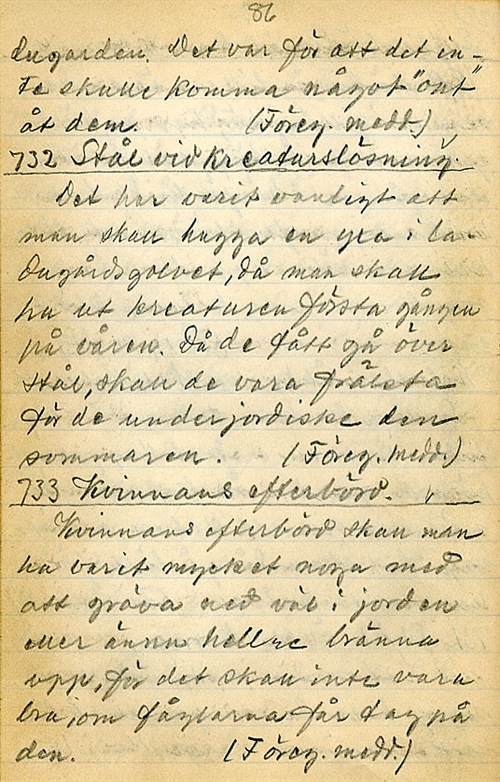 86
dugården. Det var för att det in-
te skulle komma något "ont"
åt dem. (Föreg. medd.)
732 Stål vid kreaturslösning.
Det har varit vanligt att
man skall hugga en yxa i la-
dugårdsgolvet, då man skall
ha ut kreaturen första gången
på våren. Då de fått gå över
stål, skall de vara frälsta
för de underjordiske den
sommaren. (Föreg. medd.)
733 Kvinnans efterbörd.
Kvinnans efterbörd skall man
ha varit mycket noga med
att gräva ned väl i jorden
eller ännu hellre bränna
upp, för det skall inte vara
bra, om fåglarna får tag på
den. (Föreg. medd.)